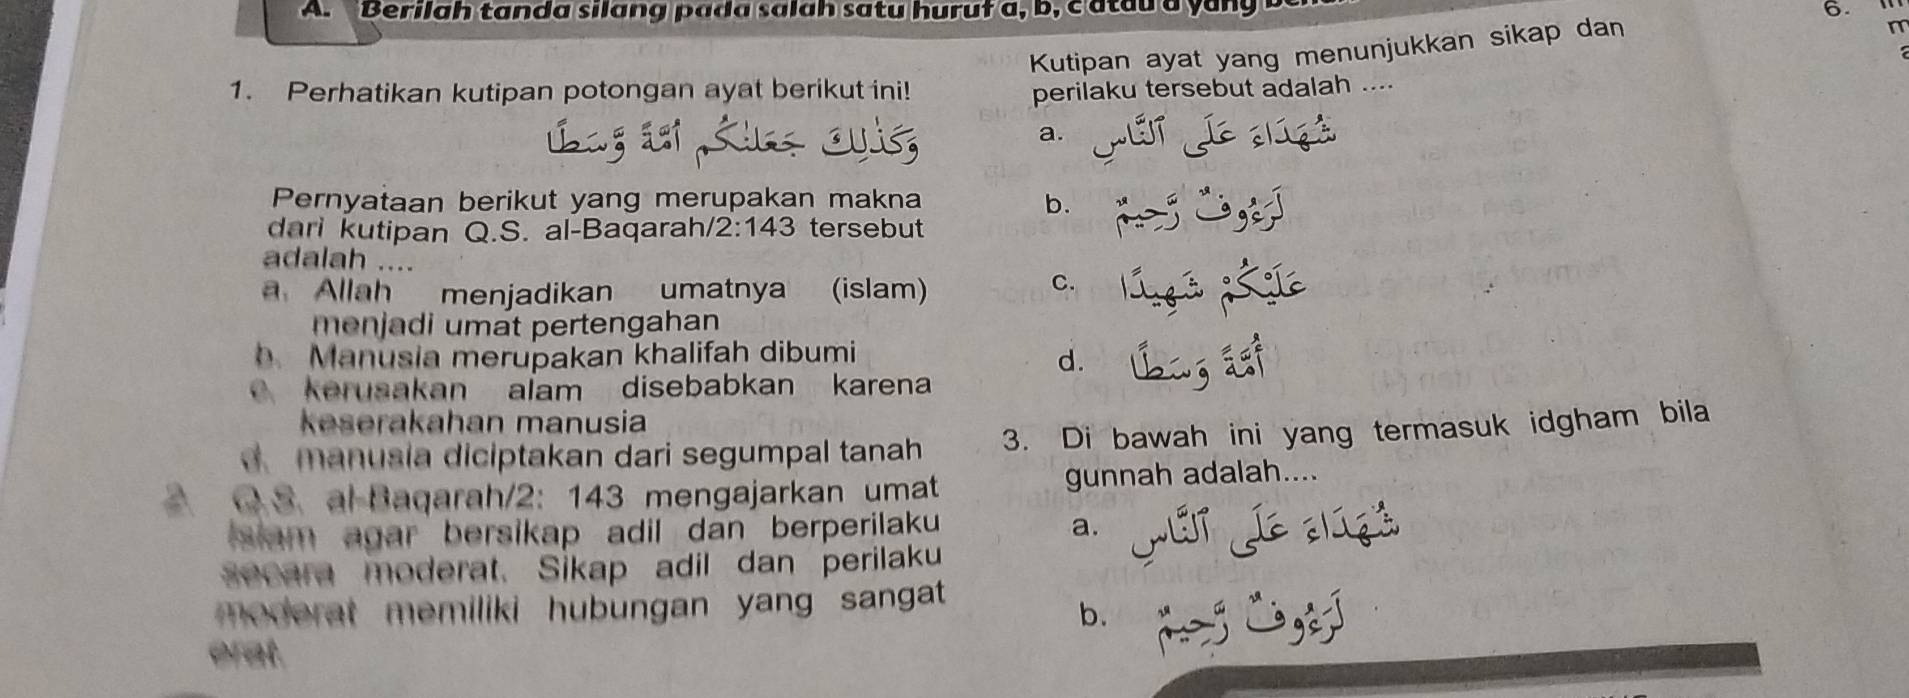 A. Berilah tanda silang pada salah satu huruf a, b, c atau d yang
1. Perhatikan kutipan potongan ayat berikut ini!
وَكَذٰلِكَ جَعَلْنٰكُمْ اُمَّةً وَّسَطًا
Pernyataan berikut yang merupakan makna
dari kutipan Q.S. al-Baqarah/2:143 tersebut
adalah ....
a. Allah menjadikan umatnya (islam)
menjadi umat pertengahan
b. Manusia merupakan khalifah dibumi
c. kerusakan alam disebabkan karena
keserakahan manusia
d. manusia diciptakan dari segumpal tanah
2. Q.S. al-Baqarah/2: 143 mengajarkan umat
Islam agar bersikap adil dan berperilaku
secara moderat. Sikap adil dan perilaku
moderat memiliki hubungan yang sangat
erat.
Kutipan ayat yang menunjukkan sikap dan
perilaku tersebut adalah ....
a. شُهَدَاۤءَ عَلَى النَّاسِ
b. لَرَءُوْفٌ رَّحِيْمٌ
c. عَلَيْكُمْ شَهِيْدًا
d. اُمَّةً وَّسَطًا
3. Di bawah ini yang termasuk idgham bila
gunnah adalah....
a. شُهَدَاۤءَ عَلَى النَّاسِ
b. لَرَءُوْفٌ رَّحِيْمٌ
6.